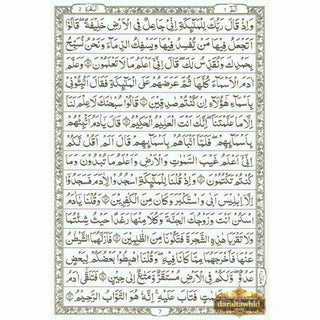 البقرة ٢
الٓمّٓ ١
وَاِذْ قَالَ رَبُّكَ لِلْمَلٰٓئِكَةِ اِنِّيْ جَاعِلٌ فِي الْاَرْضِ خَلِيْفَةً ۗ قَالُوْٓا
اَتَجْعَلُ فِيْهَا مَنْ يُّفْسِدُ فِيْهَا وَيَسْفِكُ الدِّمَآءَ وَنَحْنُ نُسَبِّحُ
بِحَمْدِكَ وَنُقَدِّسُ لَكَ ۗ قَالَ اِنِّيْٓ اَعْلَمُ مَا لَا تَعْلَمُوْنَ ۝ وَعَلَّمَ
اٰدَمَ الْاَسْمَآءَ كُلَّهَا ثُمَّ عَرَضَهُمْ عَلَى الْمَلٰٓئِكَةِ فَقَالَ اَنْۢبِـُٔوْنِيْ
بِاَسْمَآءِ هٰٓؤُلَآءِ اِنْ كُنْتُمْ صٰدِقِيْنَ ۝ قَالُوْا سُبْحٰنَكَ لَا عِلْمَ لَنَآ
اِلَّا مَا عَلَّمْتَنَا ۗ اِنَّكَ اَنْتَ الْعَلِيْمُ الْحَكِيْمُ ۝ قَالَ يٰٓاٰدَمُ اَنْۢبِئْهُمْ
بِاَسْمَآئِهِمْ ۚ فَلَمَّآ اَنْۢبَاَهُمْ بِاَسْمَآئِهِمْ ۙ قَالَ اَلَمْ اَقُلْ لَّكُمْ
اِنِّيْٓ اَعْلَمُ غَيْبَ السَّمٰوٰتِ وَالْاَرْضِ ۙ وَاَعْلَمُ مَا تُبْدُوْنَ وَمَا
كُنْتُمْ تَكْتُمُوْنَ ۝ وَاِذْ قُلْنَا لِلْمَلٰٓئِكَةِ اسْجُدُوْا لِاٰدَمَ فَسَجَدُوْٓا
اِلَّآ اِبْلِيْسَ ۗ اَبٰى وَاسْتَكْبَرَ وَكَانَ مِنَ الْكٰفِرِيْنَ ۝ وَقُلْنَا يٰٓاٰدَمُ
اسْكُنْ اَنْتَ وَزَوْجُكَ الْجَنَّةَ وَكُلَا مِنْهَا رَغَدًا حَيْثُ شِئْتُمَا
وَلَا تَقْرَبَا هٰذِهِ الشَّجَرَةَ فَتَكُوْنَا مِنَ الظّٰلِمِيْنَ ۝ فَاَزَلَّهُمَا الشَّيْطٰنُ
عَنْهَا فَاَخْرَجَهُمَا مِمَّا كَانَا فِيْهِ ۖ وَقُلْنَا اهْبِطُوْا بَعْضُكُمْ لِبَعْضٍ
عَدُوٌّ ۚ وَلَكُمْ فِي الْاَرْضِ مُسْتَقَرٌّ وَّمَتَاعٌ اِلٰى حِيْنٍ ۝ فَتَلَقّٰٓى اٰدَمُ
كَلِمٰتٍ فَتَابَ عَلَيْهِ ۗ اِنَّهٗ هُوَ التَّوَّابُ الرَّحِيْمُ ۝
7
daraltawhid